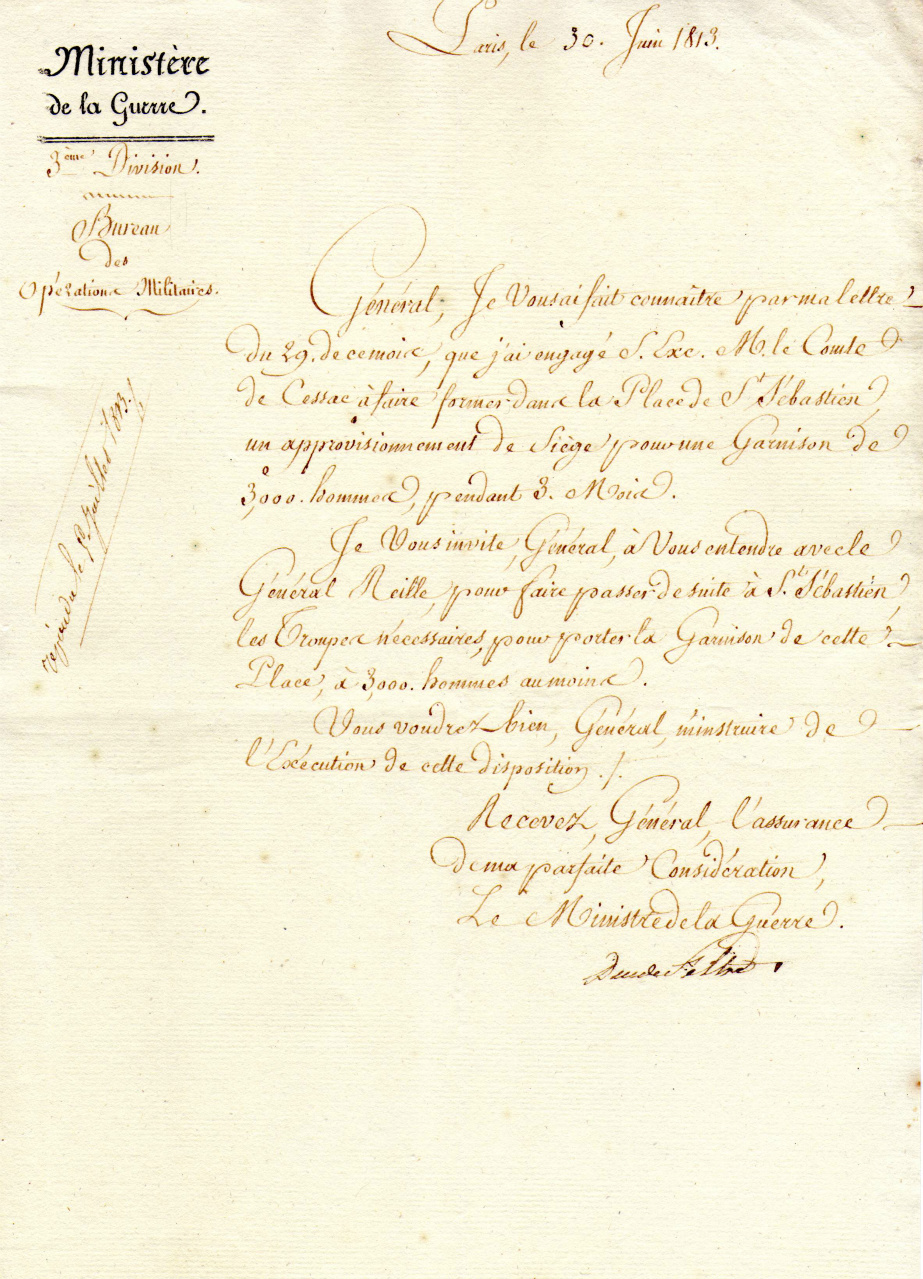 Paris, le 30. Juin 1813.
Ministère
de la Guerre.
3ème Division.
Bureau
des
Opérations Militaires.
Général, Je Vous ai fait connaître par ma lettre
du 29. de ce mois, que j'ai engagé S. Exc. M. le Comte
de Cessac à faire former dans la Place de St. Sébastien
un approvisionnement de Siège pour une Garnison de
3,000. hommes, pendant 3. Mois.
Je Vous invite, Général, à Vous entendre avec le
Général Reille, pour faire passer de suite à St. Sébastien
les Troupes nécessaires, pour porter la Garnison de cette
Place, à 3,000. hommes au moins.
Vous voudrez bien, Général, m'instruire de
l'Exécution de cette disposition ./.
Recevez, Général, l'assurance
de ma parfaite Considération,
Le Ministre de la Guerre.
Duc de Feltre
répondu le 5 Juillet 1813.